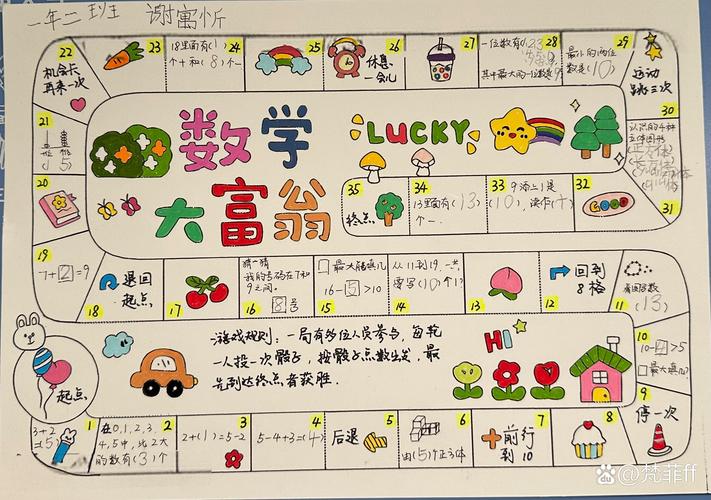 一年二班 谢寓忻
22
机会卡
再来一次
23
18里面有(1)
个十和(8)个一
24
25
26
休息
一会儿
27
28
一位数有
其中最大的一位数是9
29
最小的两位
数是(10)
运动
跳三次
30
21
十位 个位
(15)
数学
LUCKY
大富翁
20
35
终点
34
13里面有(13)
个一
33
9添上1是
(10),读作(十)
32
GOOD
31
19
7+2=9
18
退回
起点
17
猜一猜
我的号码在7和
9之间.
16
8号
□最大能填几
15
16-5>10
从11到19,一共
要写(10)个1
14
13
12
回到
8格
11
看图写数
(13)
游戏规则:一局有多位人员参与,每轮
一人投一次骰子,按骰子点数出发,最
先到达终点者获胜.
HI
起点
10
10-4>5
□最大填几?
9
停一次
1
3+2
=(5)
2
在0,1,2,3,
4,5中,比2大
的数有(3)个
3
2+(1)=5-2
4
5-4+3=(4)
5
后退
6
由(5)个正方体
7
前行
到10
8
Baidu百科 @梵菲ff